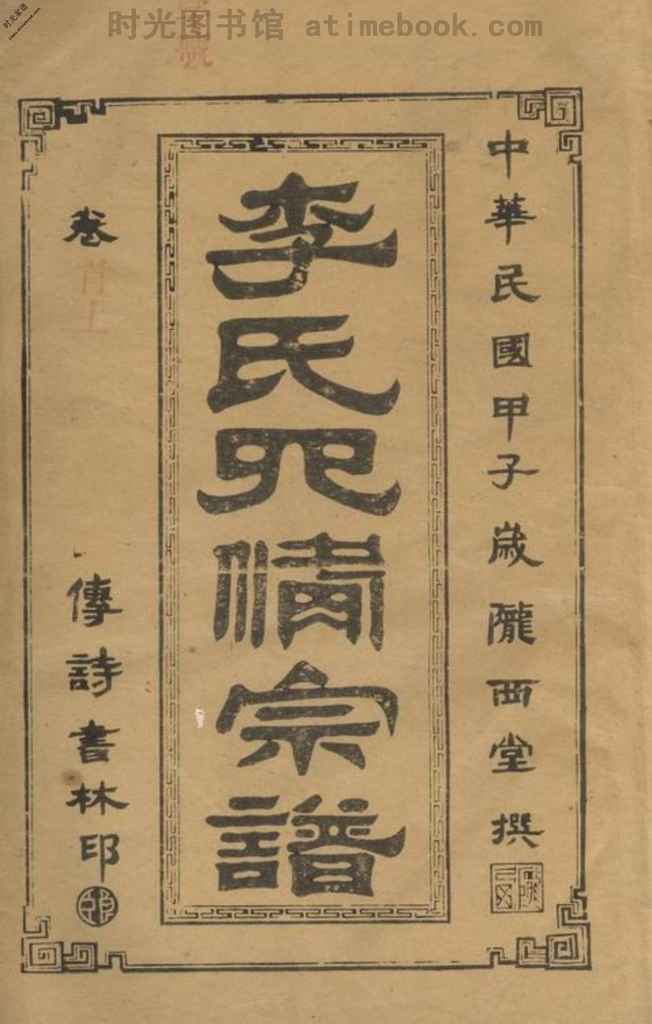 时光图书馆 atimebook.com
中華民國甲子歲隴西堂撰
李氏四脩宗譜
卷首上
傳詩書林印